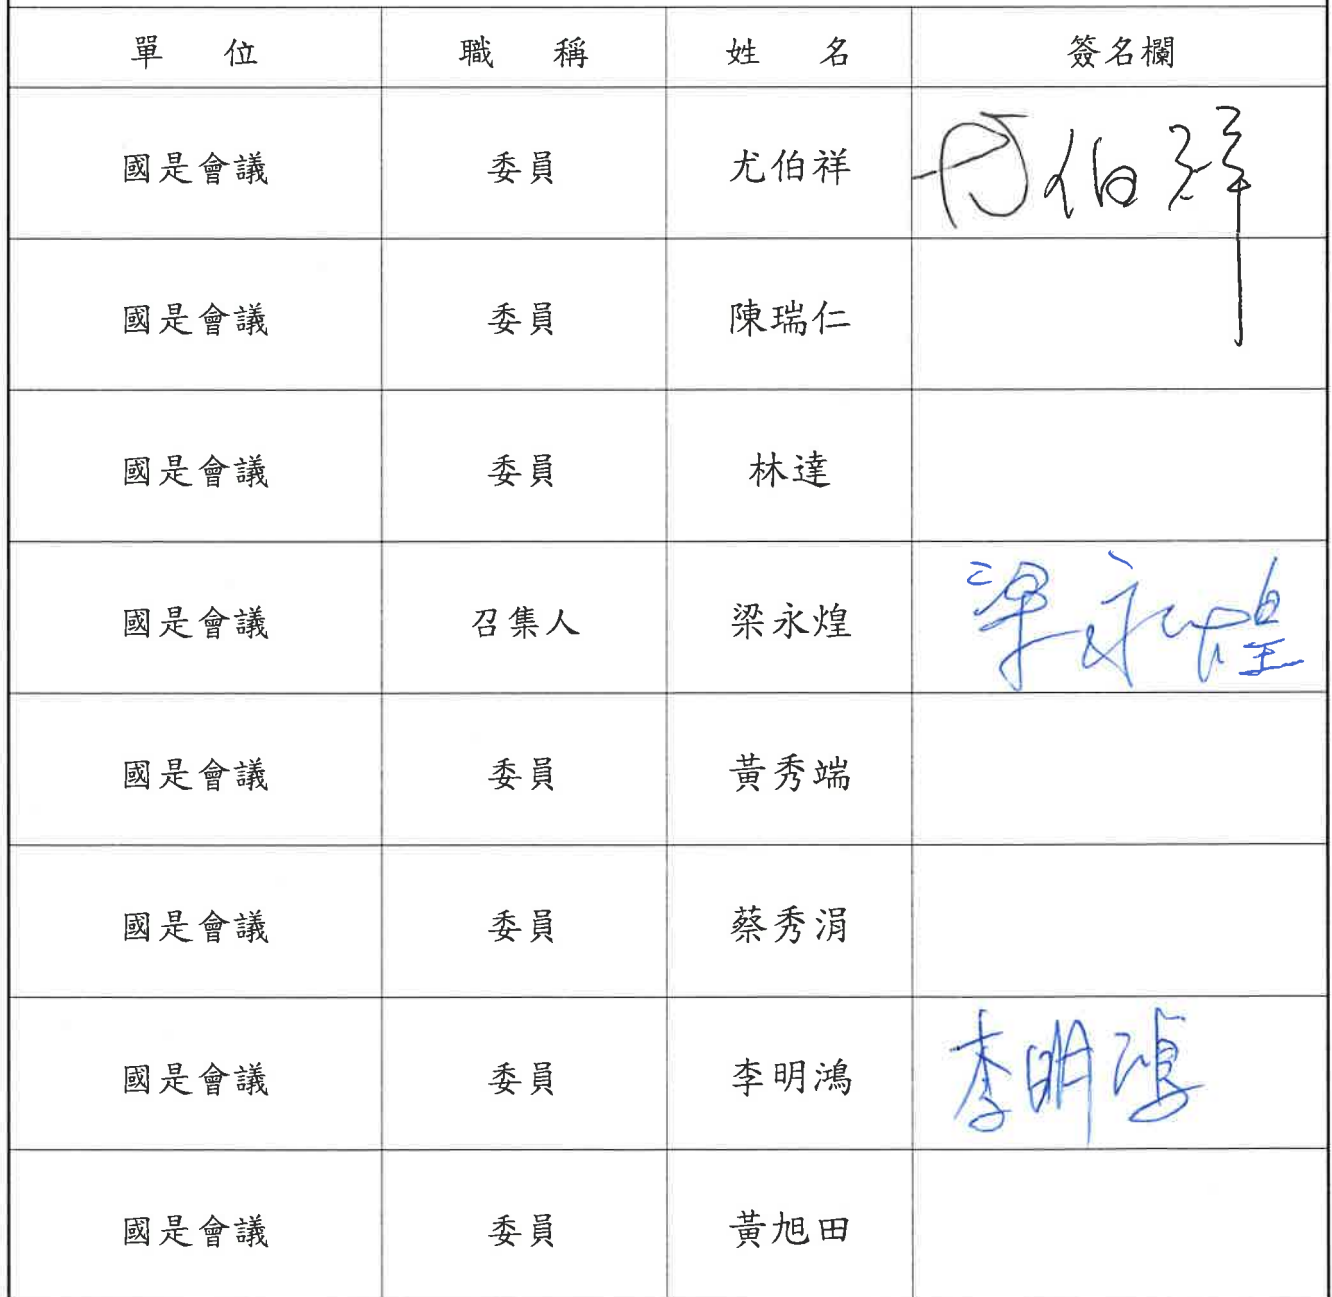 單 位 職 稱 姓 名 簽名欄
國是會議 委員 尤伯祥 尤伯祥
國是會議 委員 陳瑞仁
國是會議 委員 林達
國是會議 召集人 梁永煌 梁永煌
國是會議 委員 黃秀端
國是會議 委員 蔡秀涓
國是會議 委員 李明鴻 李明鴻
國是會議 委員 黃旭田